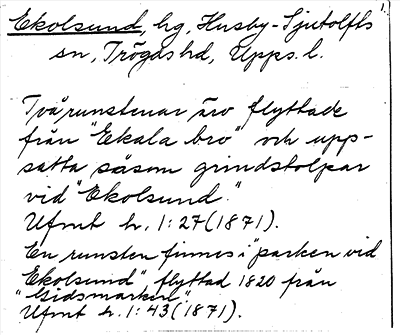 Ekolsund, hg, Husby-Sjutolfts
sn, Trögds hd, Upps. l.
Två runstenar äro flyttade
från "Ekala bro" och upp-
satta såsom grindstolpar
vid "Ekolsund."
Ufmt h. 1:27 (1871).
En runsten finnes i "parken vid
Ekolsund" flyttad 1820 från
"Gidsmarken".
Ufmt h. 1:43 (1871).